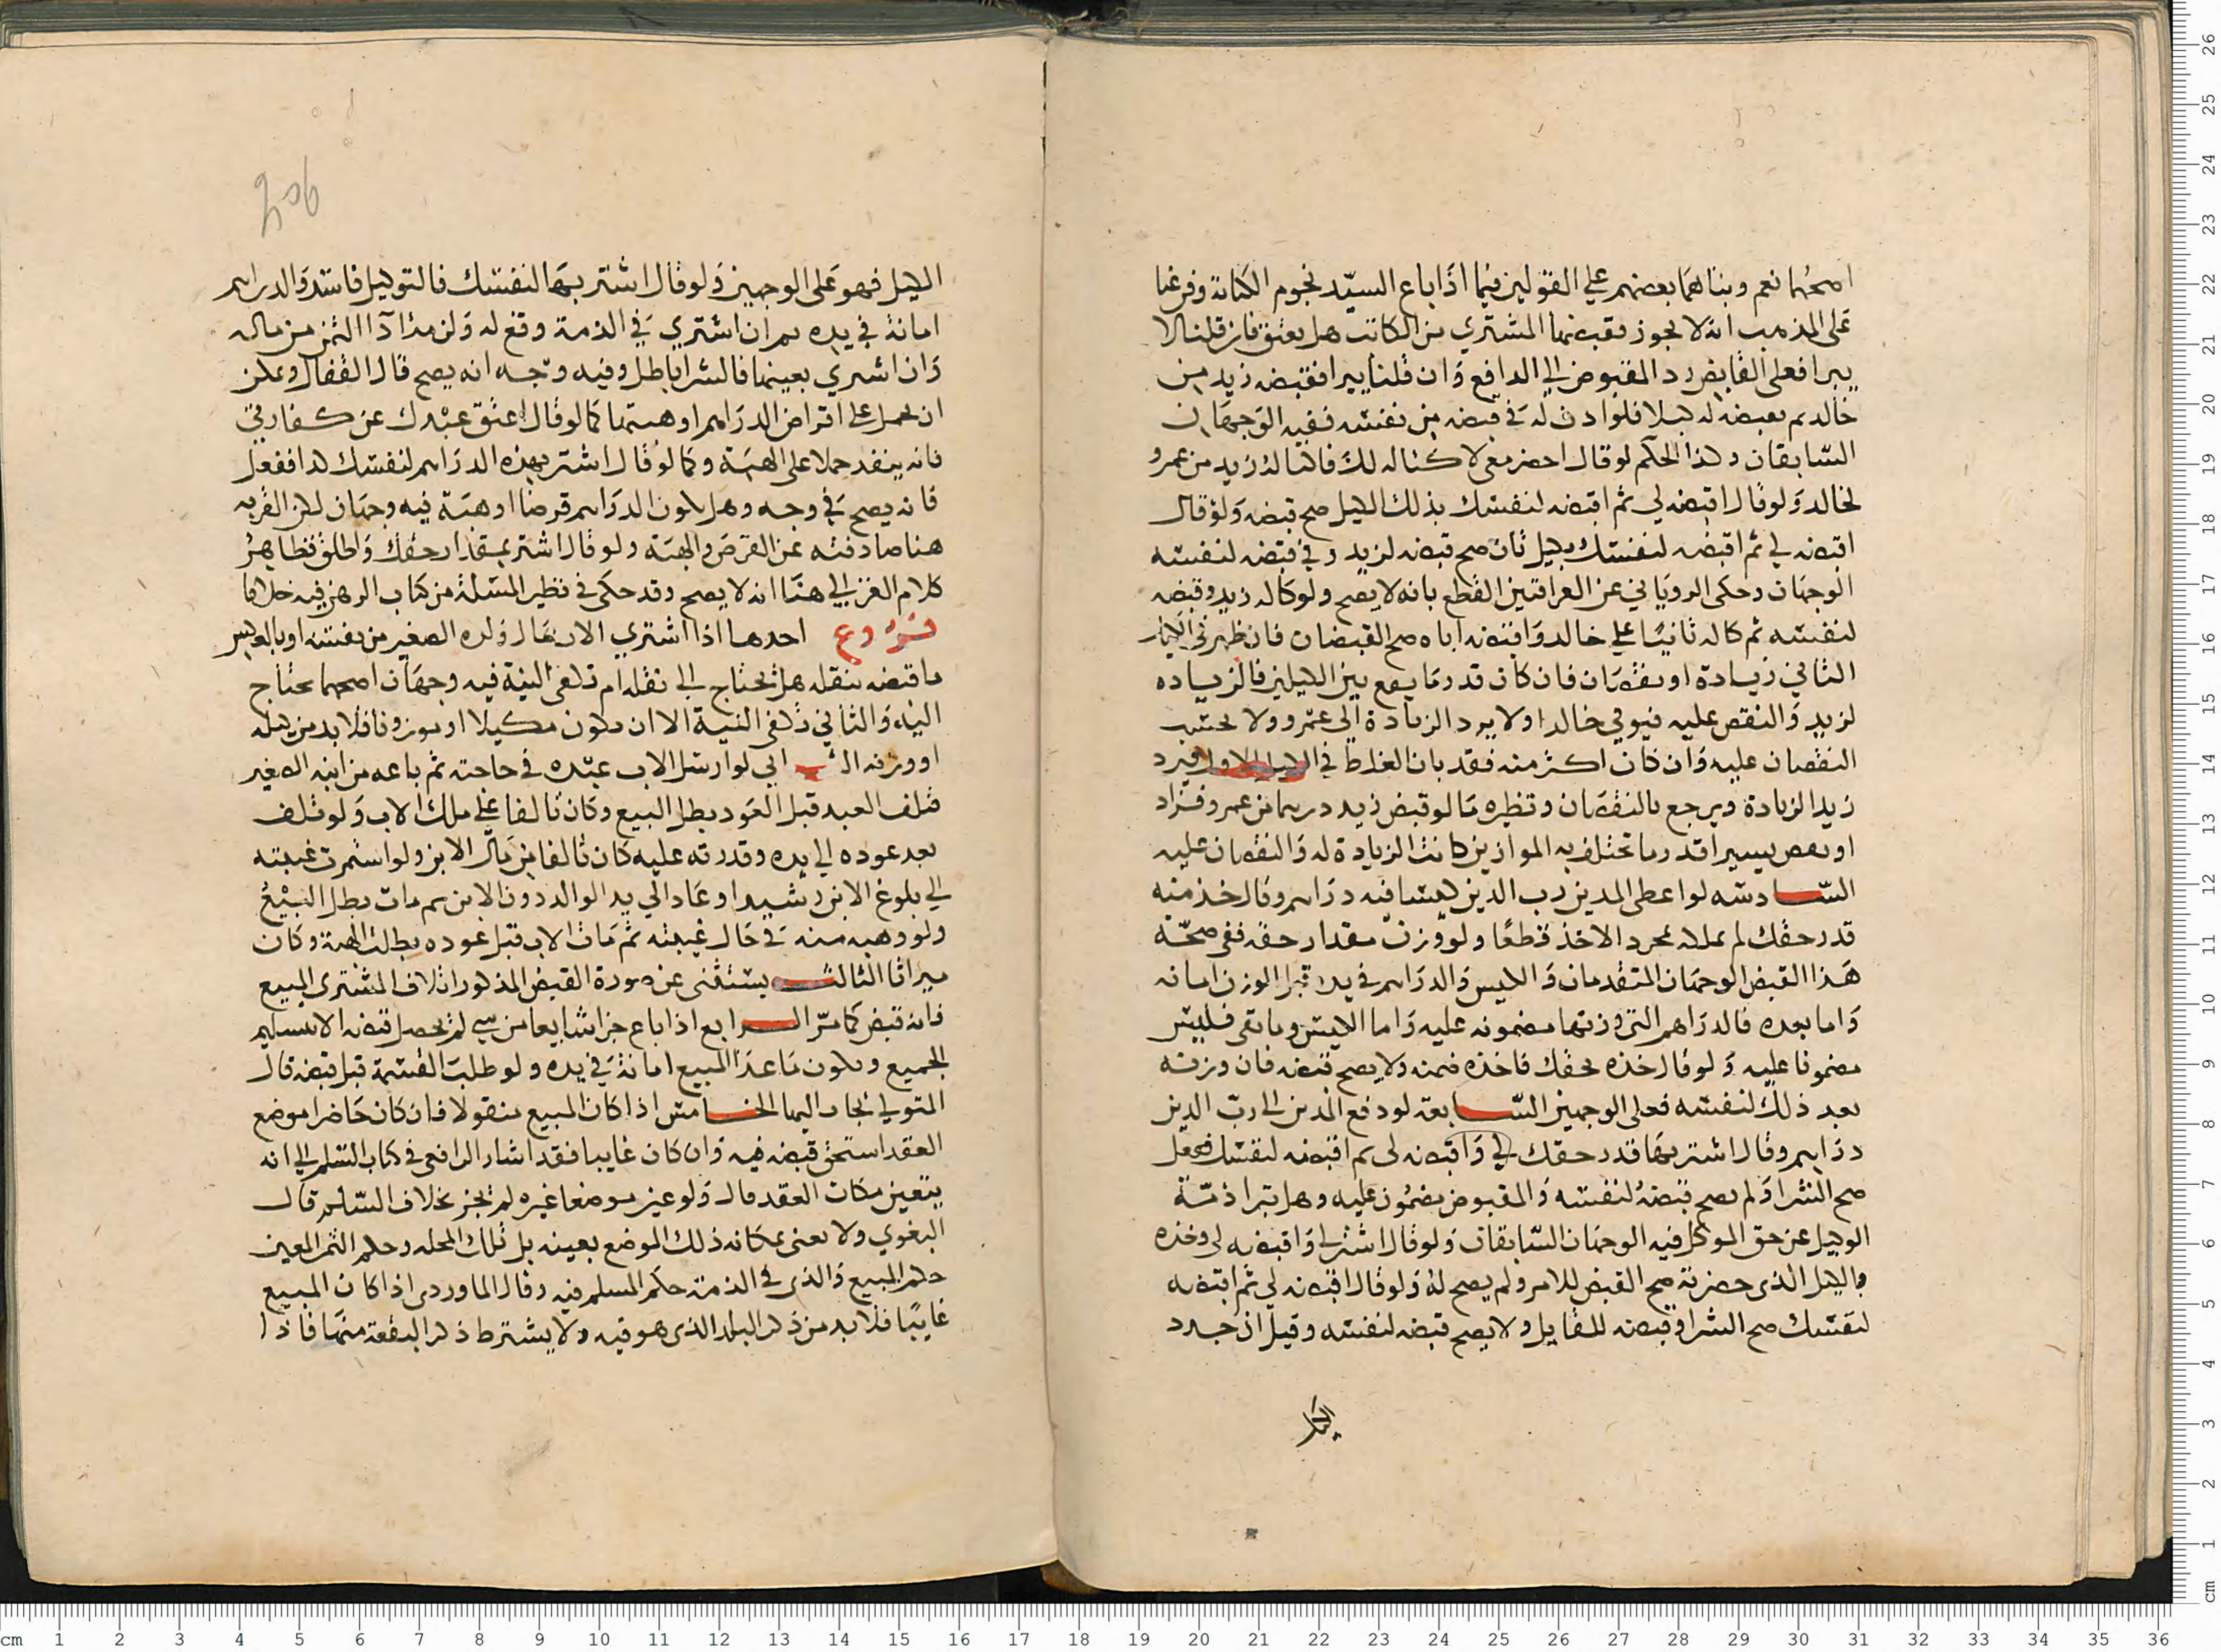 اصحهما نعم وبناهما بعضهم علي القولين فيما اذا باع السيد نجوم الكتابة وفرعنا
على المذهب انه لا يجوز فقبضها المشتري من المكاتب هل يعتق فان قلنا لا
يبرا فعلى القابض رد المقبوض الي الدافع وان قلنا يبرا فقبضه زيد من
خالد ثم يقبضه له كيلا فلو اذن له في قبضه من نفسه ففيه الوجهان
السابقان وكذا الحكم لو قال احضر معي لاكتاله لك فاكتاله زيد من عمرو
لخالد ولو قال اقبضه لي ثم اقبضه لنفسك بذلك الكيل صح قبضه ولو قال
اقبضه لي ثم اقبضه لنفسك بكيل ثان صح قبضه لزيد وفي قبضه لنفسه
الوجهان وحكى الروياني عن العراقيين القطع بانه لا يصح ولو كاله زيد وقبضه
لنفسه ثم كاله ثانيا علي خالد واقبضه اياه صح القبضان فان ظهر في الكيل
الثاني زيادة او نقصان فان كان قدر ما يقع بين الكيلين فالزياده
لزيد والنقص عليه فيوفي خالدا ولا يرد الزيادة الى عمرو ولا يحتسب
النقصان عليه وان كان اكثر منه فقد بان الغلط في الكيل الاول فيرد
زيد الزيادة ويرجع بالنقصان ونظيره ما لو قبض زيد دريهما من عمرو فزاد
او نقص يسيرا قدر ما تختلف به الموازين كانت الزيادة له والنقصان عليه
السادسه لو اعطى المدين رب الدين كيسا فيه دراهم وقال خذ منه
قدر حقك لم يملك بمجرد الاخذ قطعا ولو وزن مقدار حقه ففي صحة
هذا القبض الوجهان المتقدمان والكيس والدراهم في يده قبل الوزن امانه
واما بعده فالدراهم التي وزنها مضمونه عليه واما الكيس وما بقى فليس
مضمونا عليه ولو قال خذه بحقك فاخذه ضمنه ولا يصح قبضه فان وزنه
بعد ذلك لنفسه فعلى الوجهين السابعة لو دفع المدين الى رب الدين
دراهم وقال اشتر بها قدر حقك لي واقبضه لى ثم اقبضه لنفسك ففعل
صح الشرا ولم يصح قبضه لنفسه والمقبوض مضمون عليه وهل تبرا ذمة
الوكيل عن حق الموكل فيه الوجهان السابقان ولو قال اشتر لي واقبضه لي وخذه
بالكيل الذى حضرته صح القبض للامر ولم يصح له ولو قال اقبضه لي ثم اقبضه
لنفسك صح الشرا وقبضه للقايل ولا يصح قبضه لنفسه وقيل ان جدد
الكيل
الكيل فهو على الوجهين ولو قال اشتر بها لنفسك فالتوكيل فاسد والدراهم
امانة في يده ثم ان اشتري في الذمة وقع له ولزمه اداء الثمن من ماله
وان اشتري بعينها فالشرا باطل وفيه وجه انه يصح قال القفال ويمكن
ان يحمل على اقتراض الدراهم او هبتها كما لو قال اعتق عبدك عن كفارتي
فانه ينفذ حملا على الهبة وكما لو قال اشتر بهذه الدراهم لنفسك كذا ففعل
فانه يصح في وجه وهل يكون الدراهم قرضا او هبة فيه وجهان لكن القرينه
هنا صادفته عن القرض والهبة ولو قال اشتر بمقدار حقك واطلق فظاهر
كلام الغزالي هنا انه لا يصح وقد حكى في نظير المسلة من كتاب الرهن فيه خلافا
فروع احدها اذا اشتري الاب مال ولده الصغير من نفسه او بالعكس
فاقبضه بنقله هل يحتاج الى نقله ام تكفى النية فيه وجهان اصحهما يحتاج
اليه والثاني تكفي النية الا ان يكون مكيلا او موزونا فلا بد من كيله
او وزنه الثاني لو ارسل الاب عبده في حاجته ثم باعه من ابنه الصغير
فتلف العبد قبل العود بطل البيع وكان تالفا على ملك الاب ولو تلف
بعد عوده الي يده وقدرته عليه كان تالفا من مال الابن ولو استمرت غيبته
الي بلوغ الابن رشيدا وعاد الي يد الوالد دون الابن ثم مات بطل البيع
ولو وهبه منه في حال غيبته ثم مات الاب قبل عوده بطلت الهبة وكان
ميراثا الثالث يستثنى عن صورة القبض المذكور اتلاف المشترى المبيع
فانه قبض كما مر الرابع اذا باع جزا شايعا من شي لم يحصل قبضه الا بتسليم
الجميع ويكون ما عدا المبيع امانة في يده ولو طلب القسمة قبل قبضه قال
المتولي يجاب اليها الخامس اذا كان المبيع منقولا فان كان حاضرا موضع
العقد استحق قبضه فيه وان كان غايبا فقد اشار الرافعى في كتاب السلم الي انه
يتعين مكان العقد قال ولو عين موضعا غيره لم يجز بخلاف السلم قال
البغوي ولا يعنى بمكانه ذلك الموضع بعينه بل تلك المحله وحكم الثمن المعين
حكم المبيع والذى في الذمة حكم المسلم فيه وقال الماوردى اذا كان المبيع
غايبا فلا بد من ذكر البلد الذى هو فيه ولا يشترط ذكر البقعة منها فاذا